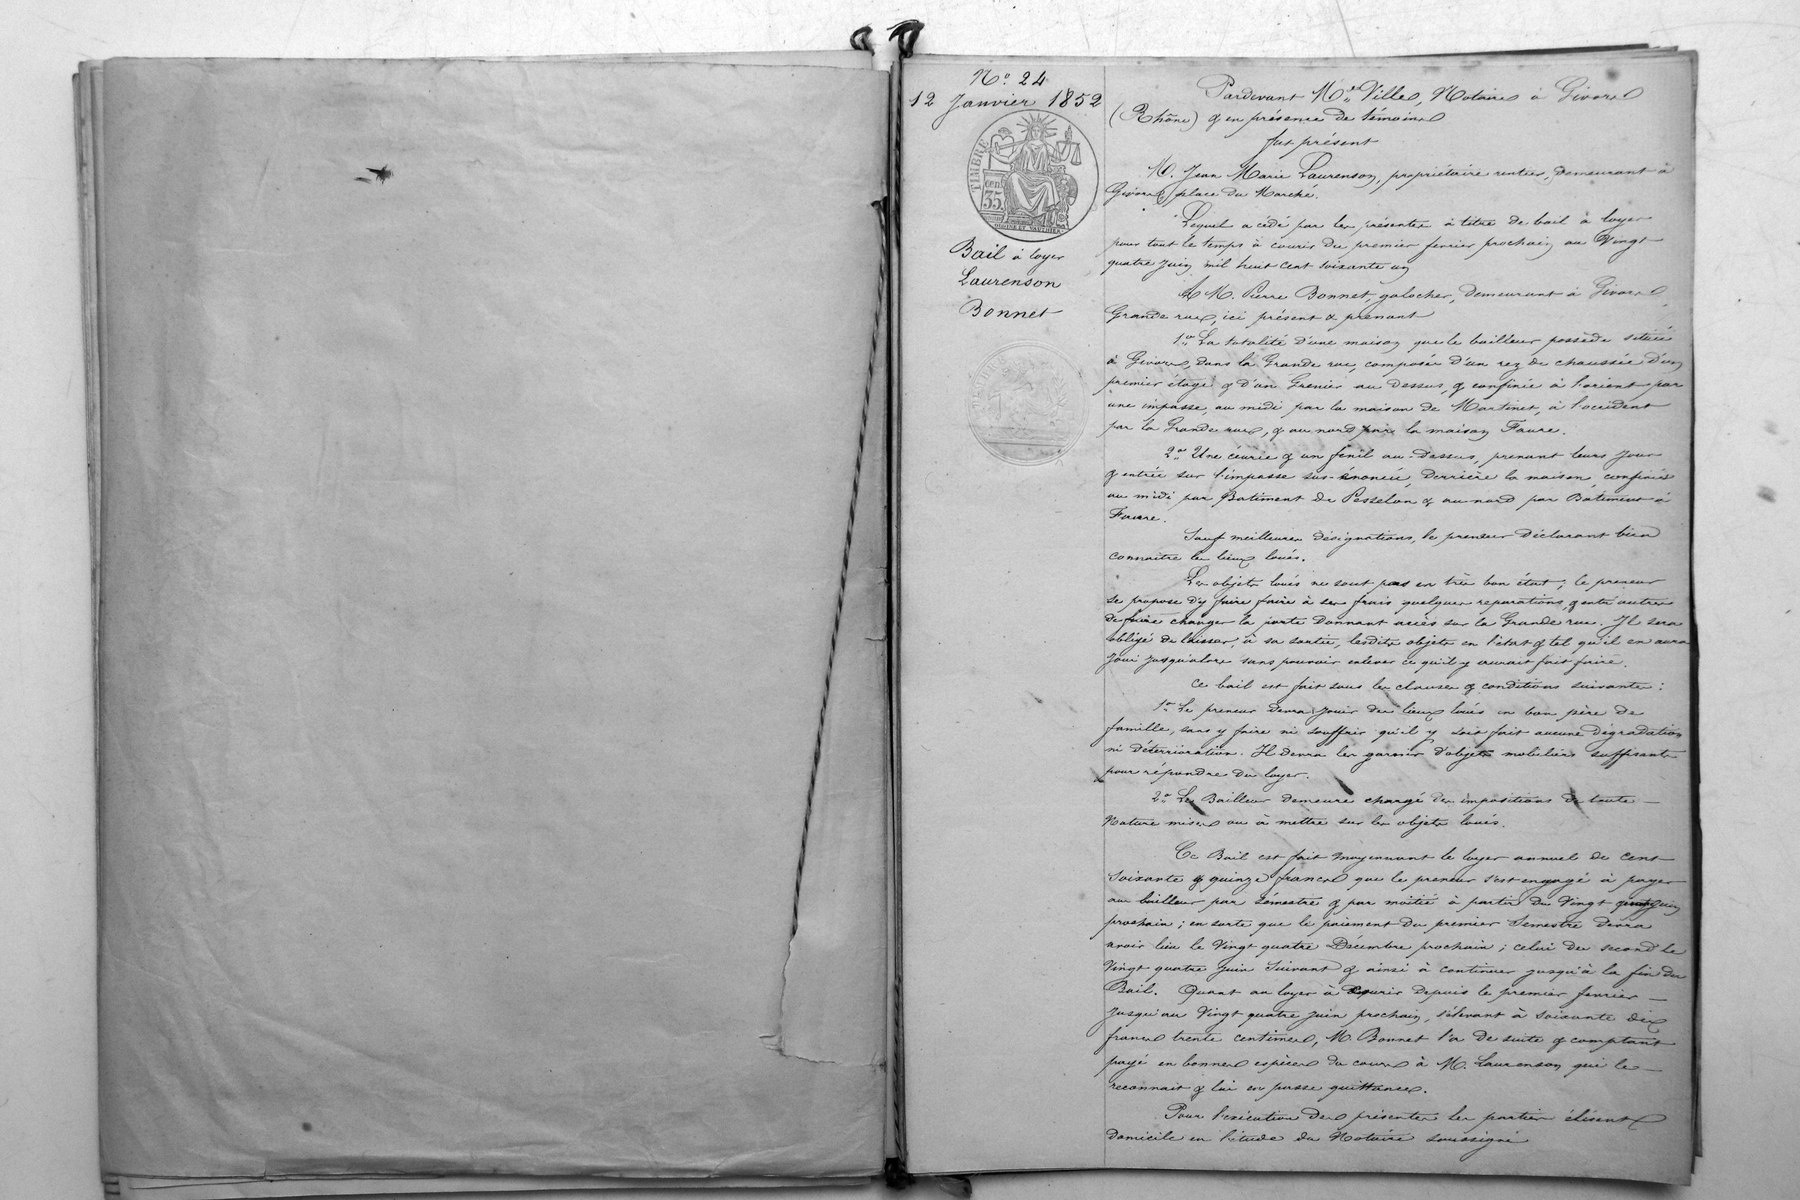 N° 24
12 Janvier 1852
TIMBRE
35
Bail à loyer
Laurenson
Bonnet
Pardevant Me Ville, Notaire à Givors
(Rhône) & en présence de témoins
fut présent
M. Jean Marie Laurenson, propriétaire rentier, demeurant à
Givors, place du Marché.
Lequel a cédé par les présentes à titre de bail à loyer
pour tout le temps à courir du premier février prochain au Vingt
quatre Juin mil huit cent soixante un
A M. Pierre Bonnet, galocher, demeurant à Givors,
Grande rue, ici présent & prenant
1° La totalité d'une maison que le bailleur possède située
à Givors, dans la Grande rue, composée d'un rez de chaussée d'un
premier étage & d'un Grenier au dessus, & confinée à l'orient par
une impasse, au midi par la maison de Martinet, à l'occident
par la Grande rue, & au nord par la maison Faure.
2° Une écurie & un fenil au-dessus, prenant leurs jour
& entrée sur l'impasse sus-énoncée, derrière la maison, confinés
au midi par Batiment de Pesselon & au nord par Batiment à
Faure.
Sauf meilleures désignations, le preneur déclarant bien
connaitre les lieux loués.
Les objets loués ne sont pas en très bon état; le preneur
se propose d'y faire faire à ses frais quelques reparations, & entr'autres
de faire changer la porte donnant accès sur la Grande rue. Il sera
obligé de laisser, à sa sortie, lesdits objets en l'état & tel qu'il en aura
joui jusqu'alors sans pouvoir enlever ce qu'il y aurait fait faire.
Ce bail est fait sous les clauses & conditions suivantes:
1° Le preneur devra jouir des lieux loués en bon père de
famille, sans y faire ni souffrir qu'il y soit fait aucune dégradation
ni déterrioration. Il devra les garnir d'objets mobiliers suffisants
pour répondre du loyer.
2° Le Bailleur demeure chargé des impositions de toute
Nature mises ou à mettre sur les objets loués.
Ce Bail est fait moyennant le loyer annuel de cent
soixante & quinze francs que le preneur s'est engagé à payer
au bailleur par Sémestre & par moitié à partir du Vingt Juin
prochain; en sorte que le paiement du premier Semestre devra
avoir lieu le Vingt quatre Décembre prochain; celui du second le
Vingt quatre Juin Suivant & ainsi à continuer jusqu'à la fin du
Bail. Quant au loyer à courir depuis le premier fevrier
jusqu'au Vingt quatre Juin prochain, s'élevant à soixante dix
francs trente centimes, M. Bonnet l'a de suite & comptant
payé en bonnes espèces du cours à M. Laurenson qui le
reconnait & lui en passe quittance.
Pour l'exécution des présentes les parties élisent
domicile en l'étude du Notaire soussigné